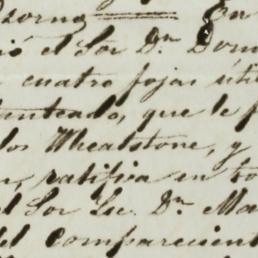 zorna == En
ió el Sor Dn. Dom
cuatro fojas úti
lanteado, que le f
los Wheatstone, y
n, ratifica en to
el Sor Lic. Dn. Ma
del comparecient